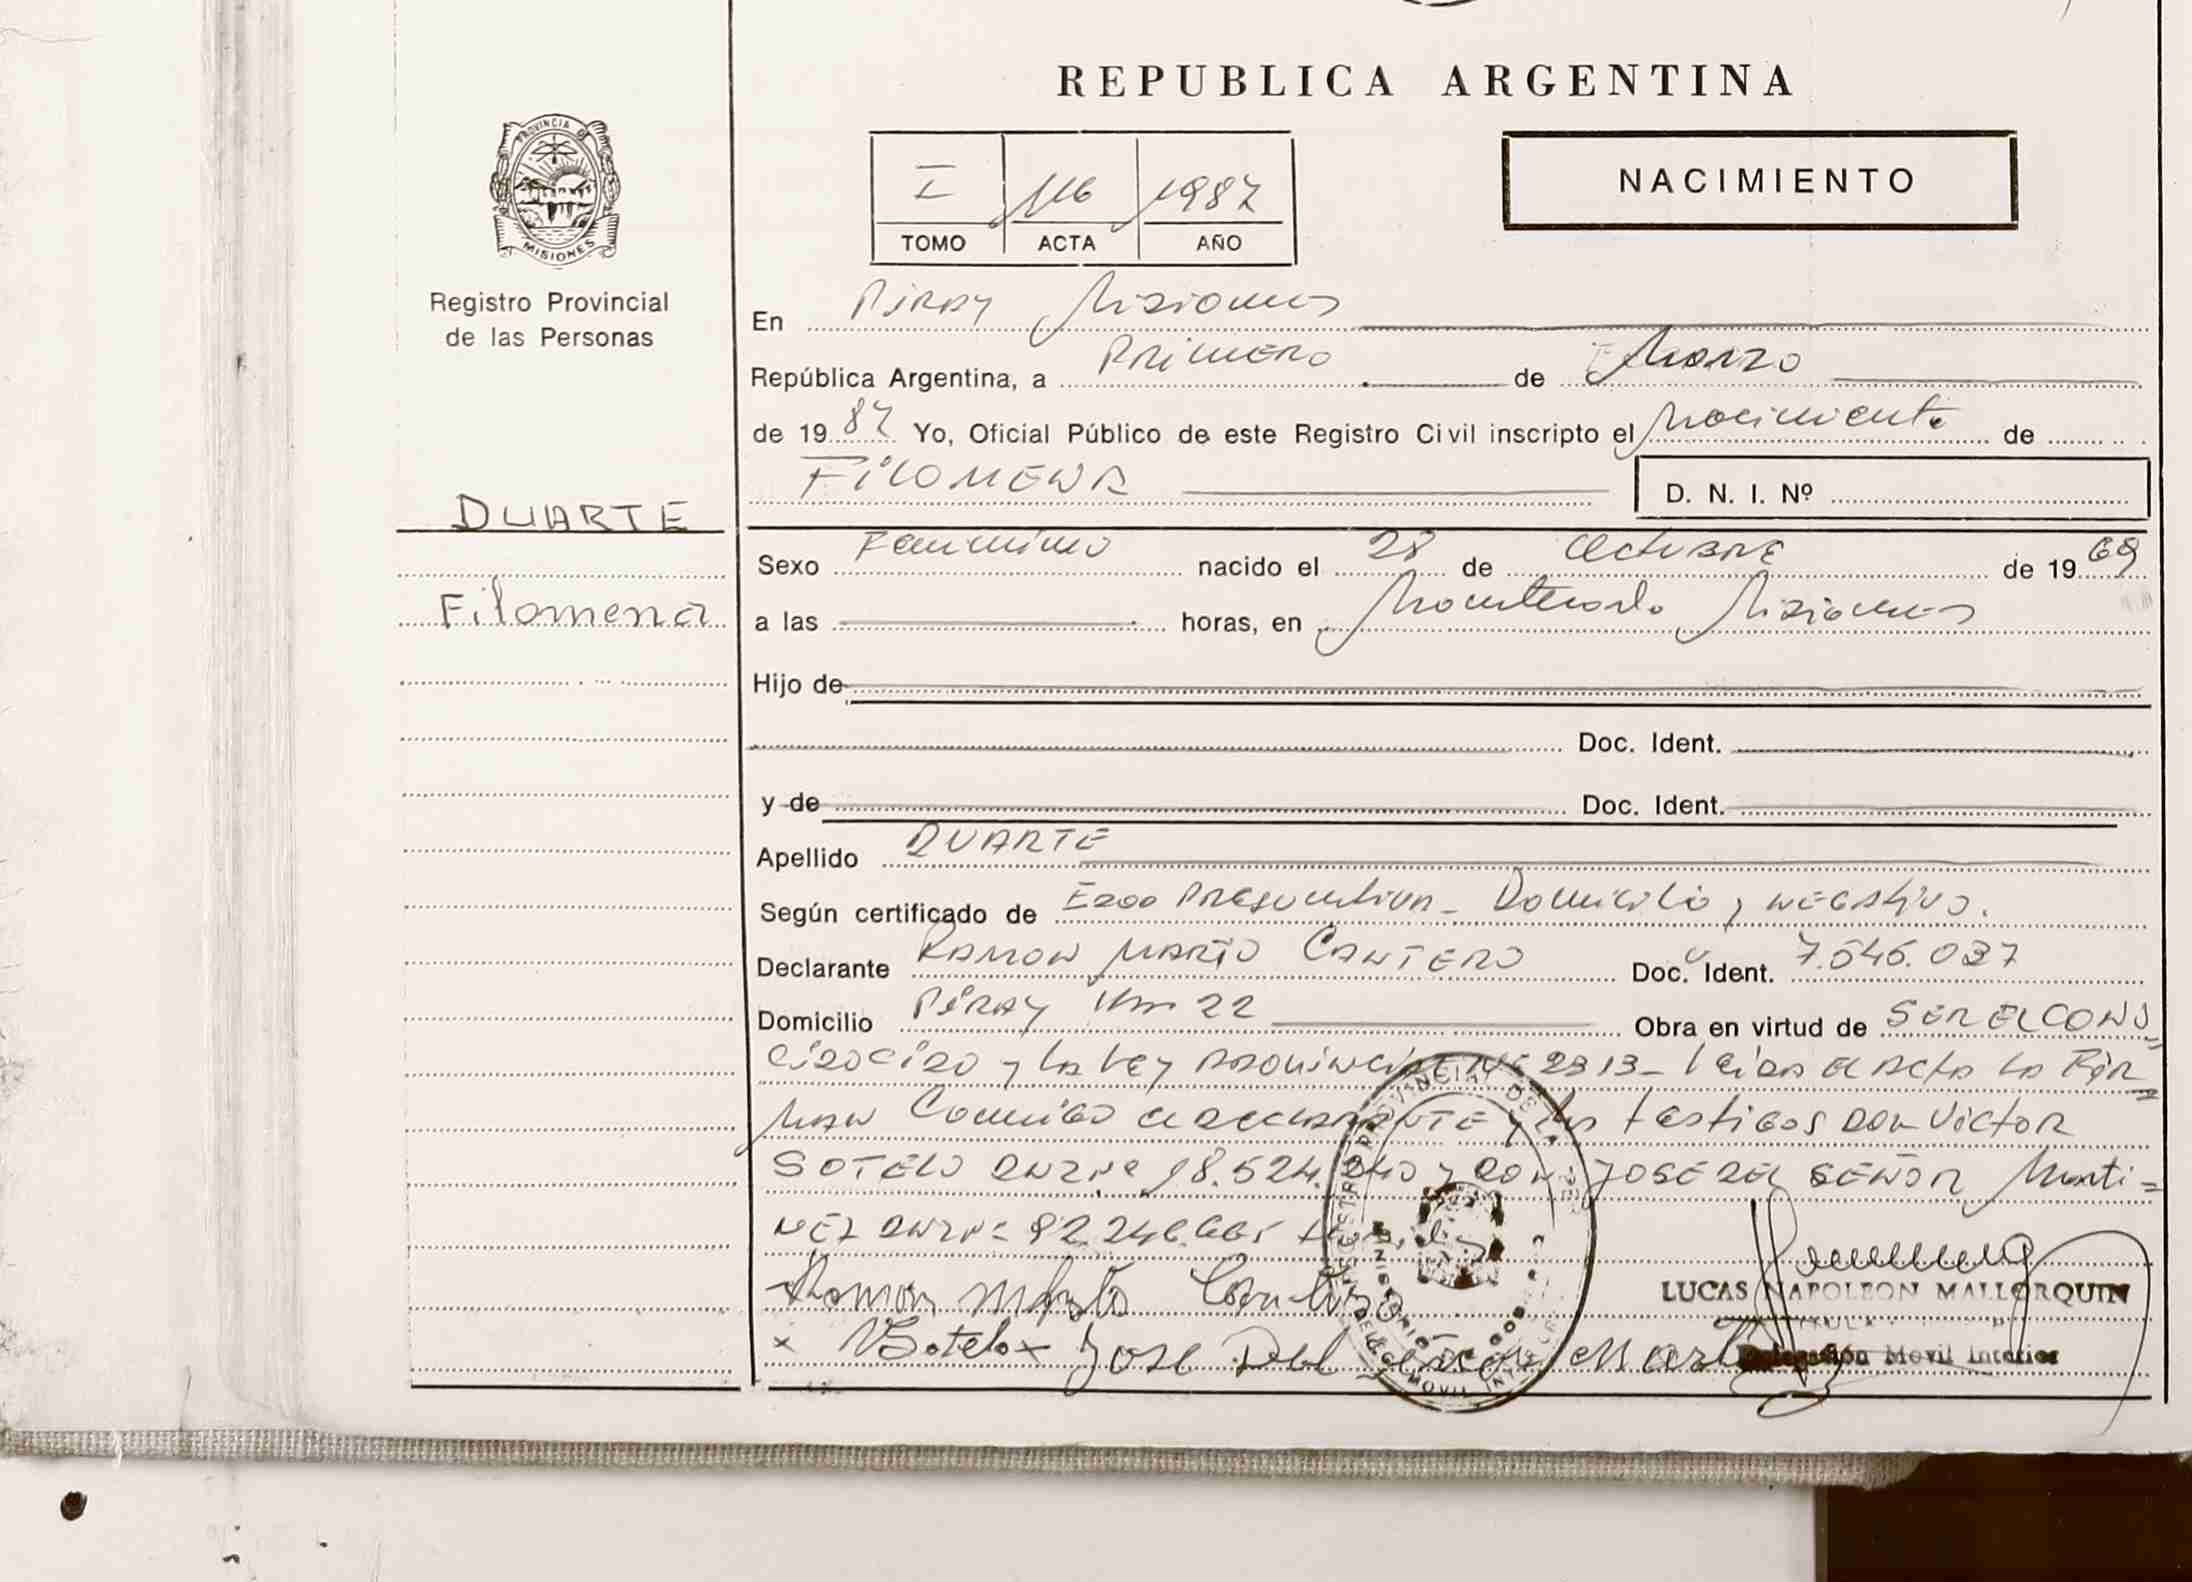 REPUBLICA ARGENTINA
PROVINCIA DE
MISIONES
Registro Provincial
de las Personas
I 116 1987
TOMO ACTA AÑO
NACIMIENTO
En Piray Misiones
República Argentina, a Primero de Marzo
de 1987 Yo, Oficial Público de este Registro Civil inscripto el Nacimiento de
FILOMENA D. N. I. Nº
DUARTE
Filomena
Sexo Femenino nacido el 28 de Octubre de 1969
a las horas, en Montecarlo Misiones
Hijo de
Doc. Ident.
y de Doc. Ident.
Apellido DUARTE
Según certificado de Edad Presuntiva - Domicilio y negativo.
Declarante RAMON MARIO CANTERO Doc. Ident. 7.546.037
Domicilio Piray Km 22 Obra en virtud de SER EL CONO=
CIDO y la Ley Provincial Nº 2313 - leida el acta la Fir=
man Conmigo el declarante y los testigos don Victor
SOTELO DNI Nº 18.524.240 y don JOSE DEL SEÑOR Marti=
NEZ DNI Nº 92.246.665
Ramon Mario Cantero
x VSotelo x Jose Del Señor Mart
LUCAS NAPOLEON MALLORQUIN
Delegación Movil Interior